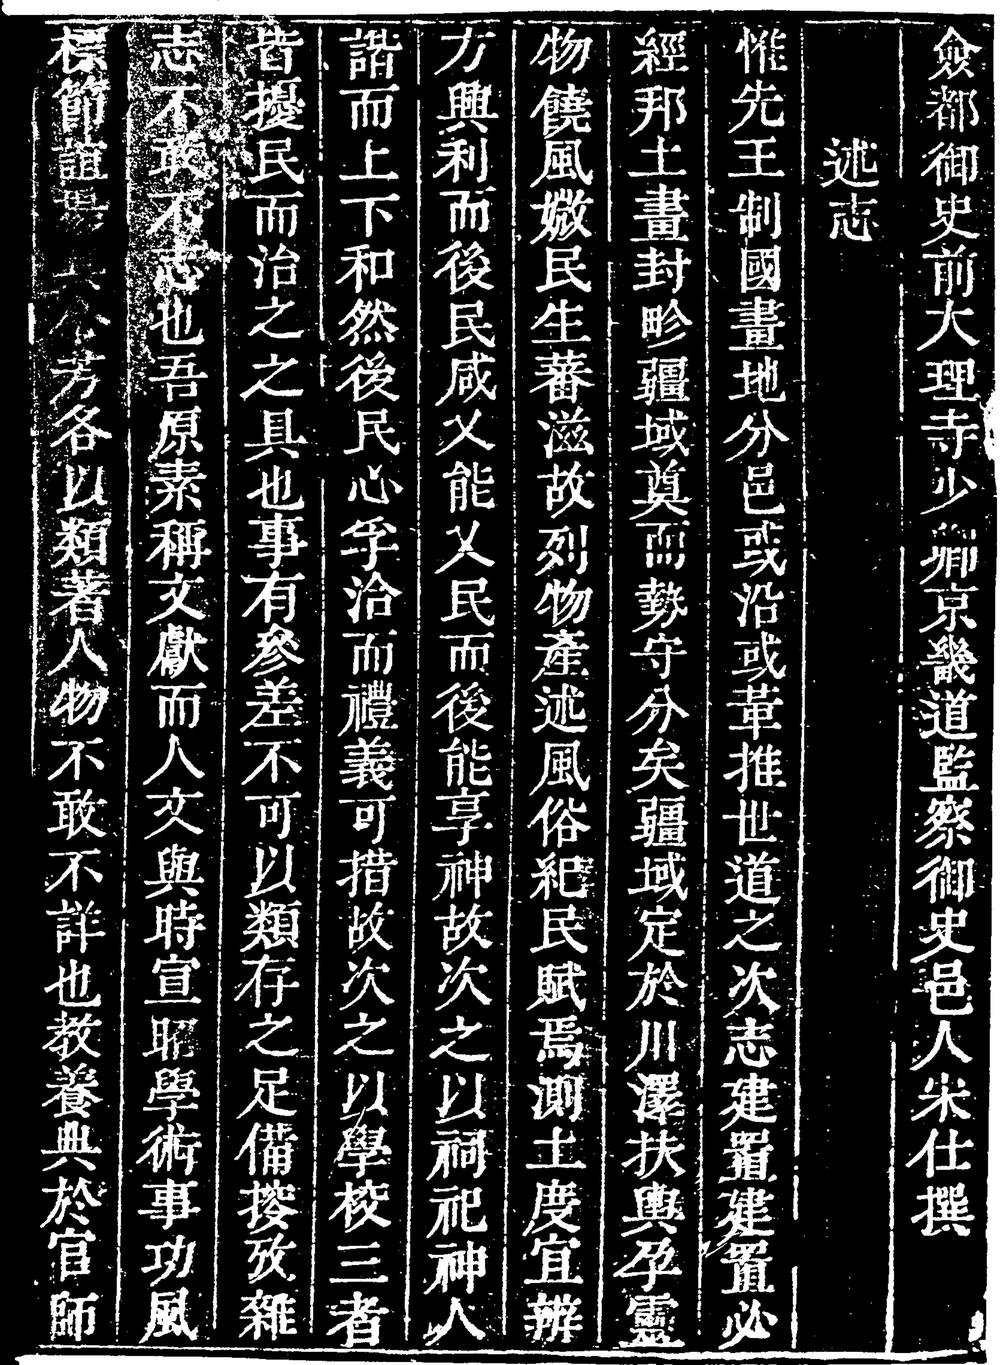 僉都御史前大理寺少卿京畿道監察御史邑人朱仕撰
述志
惟先王制國畫地分邑或沿或革推世道之次志建置建置必
經邦土畫封畛疆域奠而勢守分矣疆域定於川澤扶輿孕靈
物饒風媺民生蕃滋故列物產述風俗紀民賦焉測土度宜辨
方興利而後民咸乂能乂民而後能享神故次之以祠祀神人
諧而上下和然後民心孚洽而禮義可措故次之以學校三者
皆擾民而治之之具也事有參差不可以類存之足備按攷雜
志不敢不志也吾原素稱文獻而人文與時宣昭學術事功風
標節誼 芳各以類著人物不敢不詳也教養典於官師